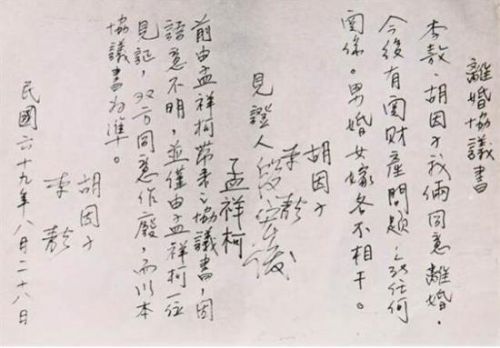 離婚協議書
李敖、胡因子我倆同意離婚,
今後有関財產問題之任何
関係。男婚女嫁各不相干。
胡因子
李敖
見證人 段宏俊
孟祥柯
前由孟祥柯帶来之協議書,因
語意不明,並僅由孟祥柯一位
見証,双方同意作廢,而以本
協議書为準。
胡因子
李敖
民國六十九年八月二十八日